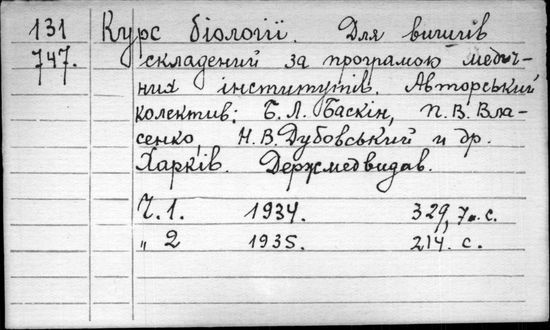 131 Курс біології. Для вишів
747. складений за програмою медич-
них інститутів. Авторський
колектив: Б. Л. Баскін, П. В. Вла-
сенко, Н. В. Дубовський и др.
Харків. Держмедвидав.
Ч. 1. 1934. 329, 7 н. с.
„ 2 1935. 214. с.